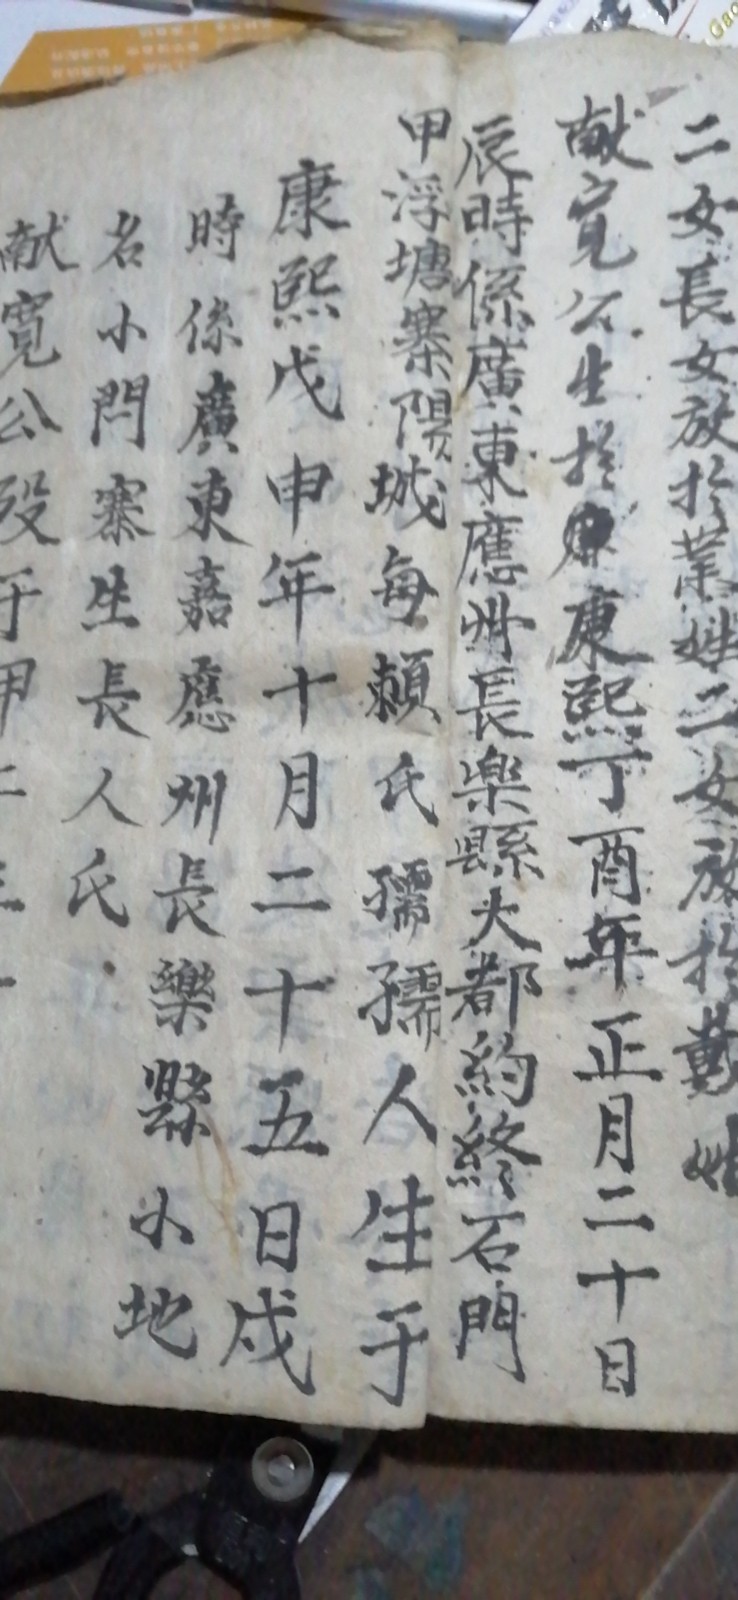 二女長女放於葉姓二女放於戴姓
献寛公生於康熙丁酉年正月二十日
辰時係廣東應州長樂縣大都約終石門
甲浮塘寨陽城每賴氏孺孺人生于
康熙戊申年十月二十五日戌
時係廣東嘉應州長樂縣小地
名小門寨生長人氏
献寛公殁于甲